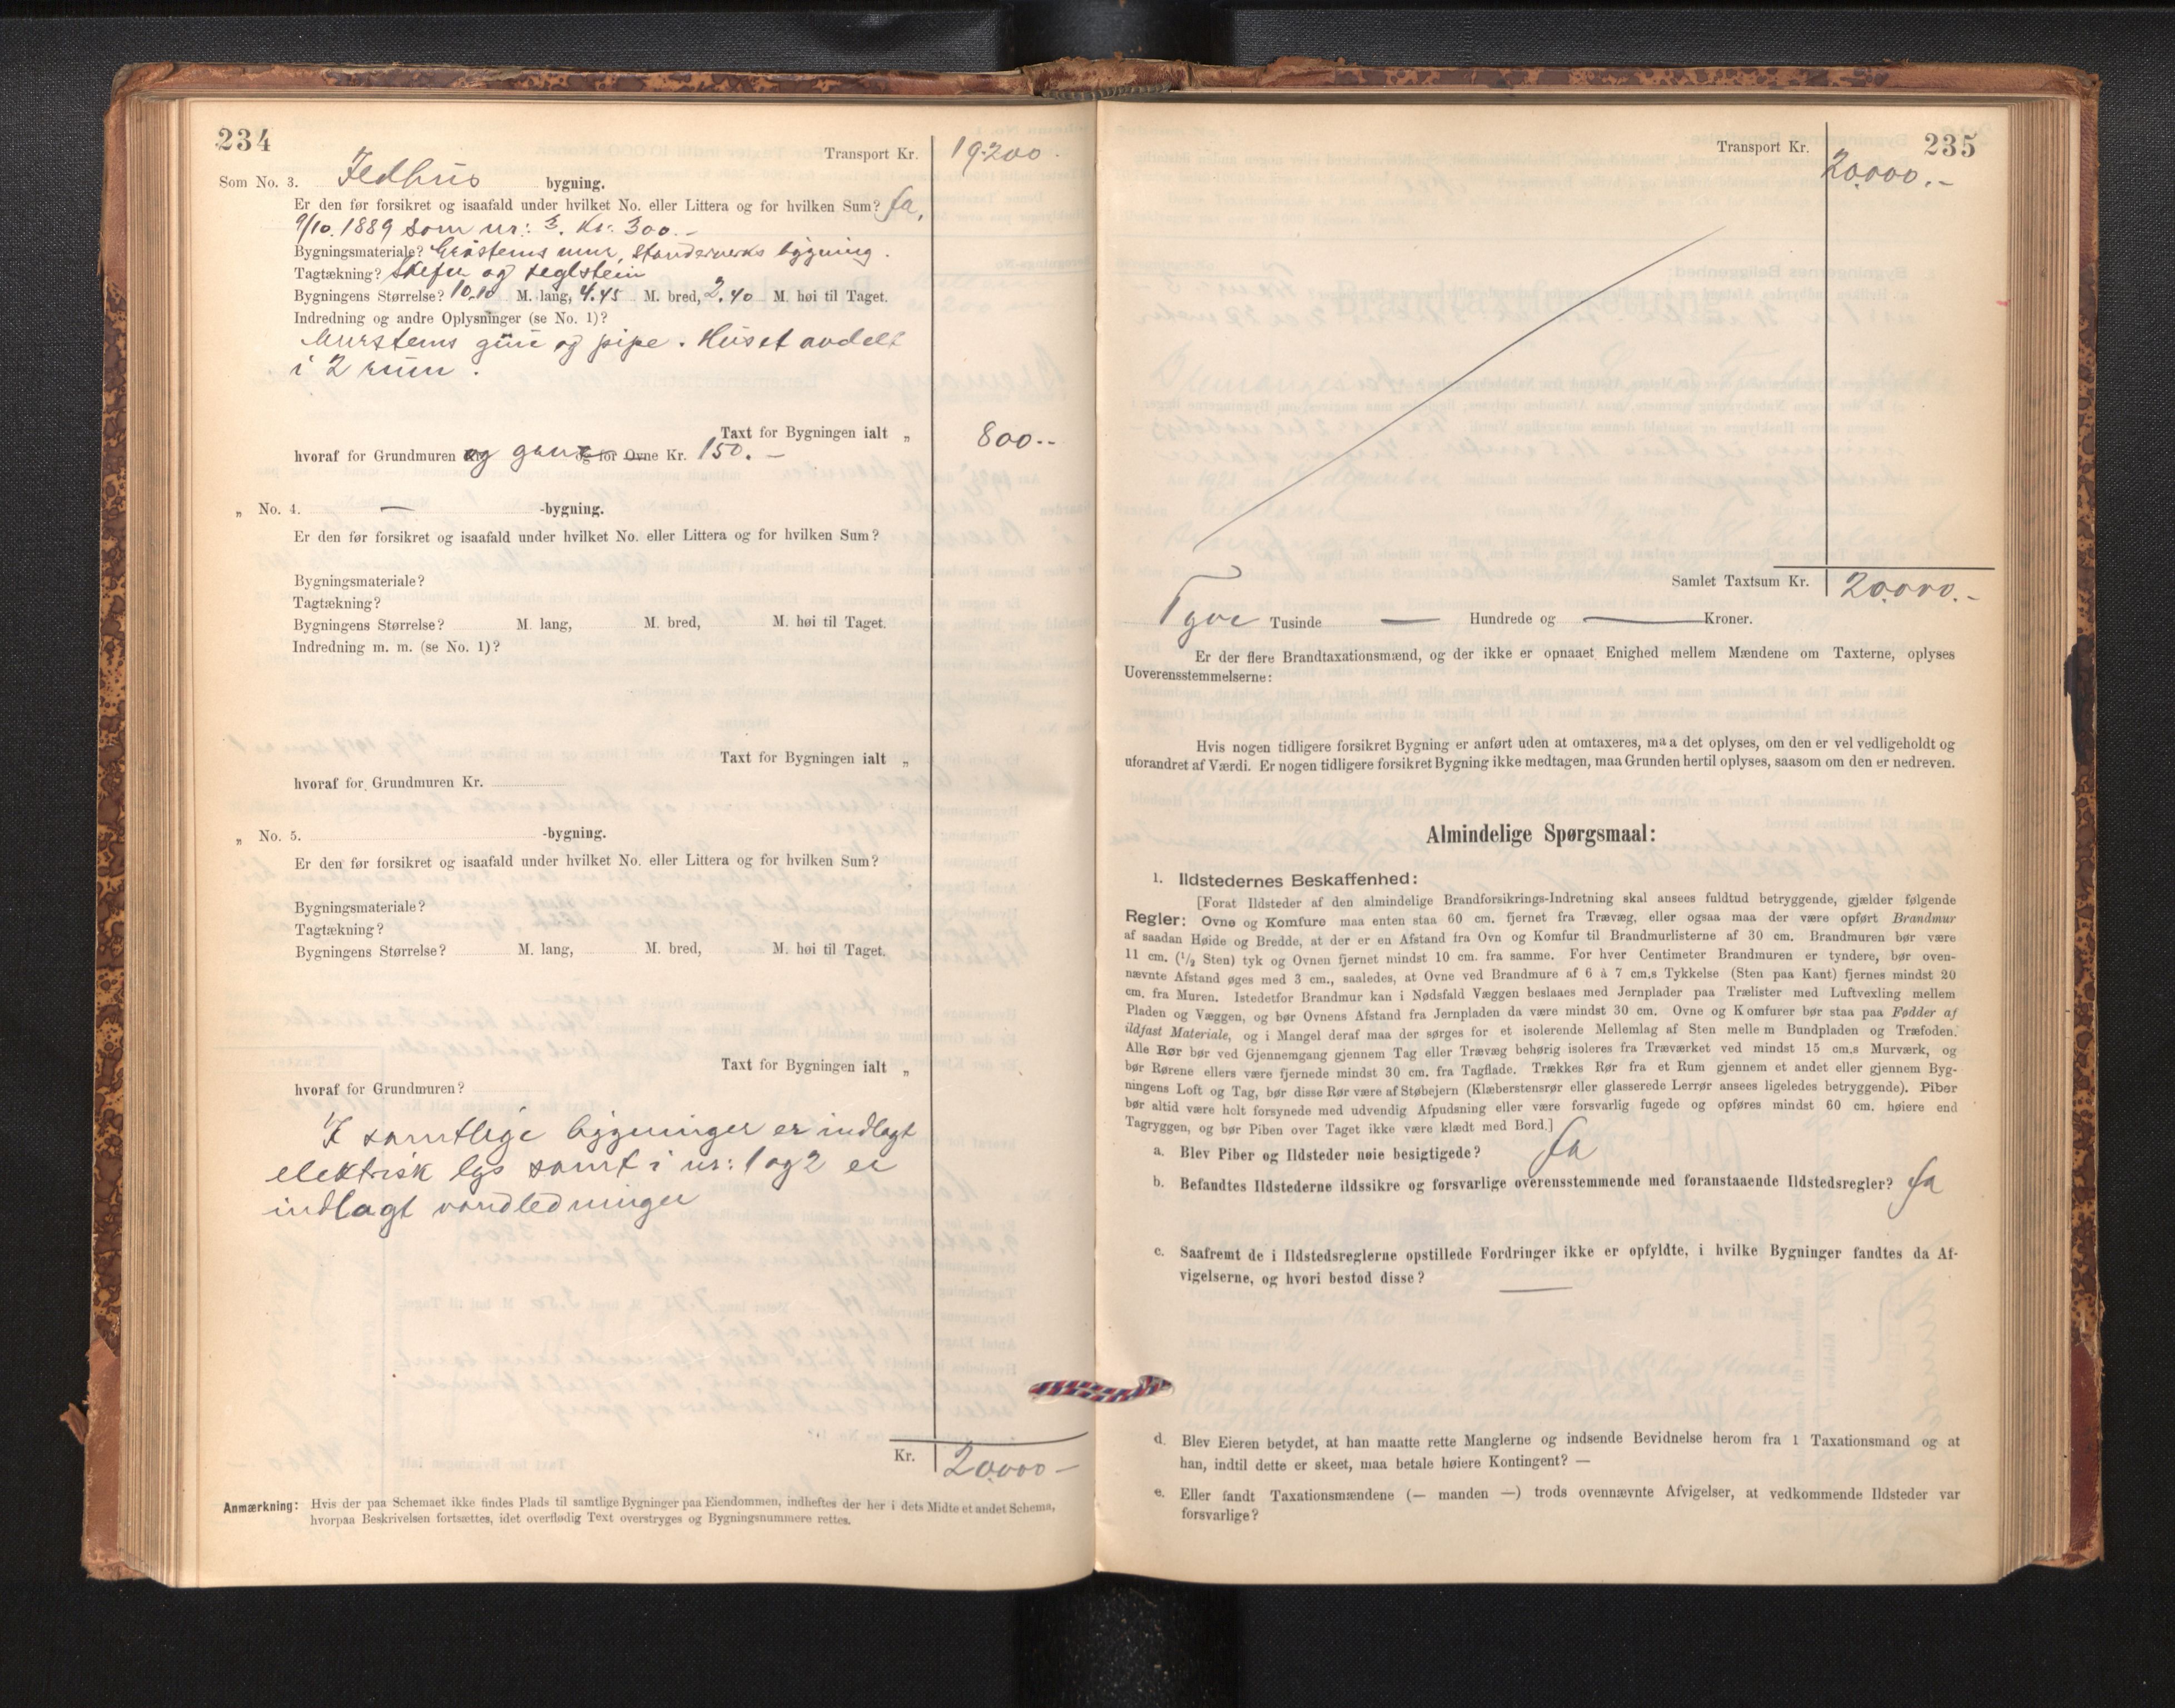 234
Transport Kr. 19.200.
Som No. 3. Ildhus bygning.
Er den før forsikret og isaafald under hvilket No. eller Littera og for hvilken Sum? Ja,
9/10. 1889 som nr: 3. Kr. 300.-
Bygningsmateriale? Graastens mur, standerverks bygning.
Tagtækning? Skifer og teglstein
Bygningens Størrelse? 10.10 M. lang, 4.45 M. bred, 2.40 M. høi til Taget.
Indredning og andre Oplysninger (se No. 1)?
Murstens grue og pipe. Huset avdelt
i 2 rum.
Taxt for Bygningen ialt „ 800.-
hvoraf for Grundmuren og grue og for Ovne Kr. 150.-
„ No. 4. — -bygning.
Er den før forsikret og isaafald under hvilket No. eller Littera og for hvilken Sum?
Bygningsmateriale?
Tagtækning?
Bygningens Størrelse? M. lang, M. bred, M. høi til Taget.
Indredning m. m. (se No. 1)?
Taxt for Bygningen ialt „
hvoraf for Grundmuren Kr.
„ No. 5. -bygning.
Er den før forsikret og isaafald under hvilket No. eller Littera og for hvilken Sum?
Bygningsmateriale?
Tagtækning?
Bygningens Størrelse? M. lang, M. bred, M. høi til Taget.
Taxt for Bygningen ialt „
hvoraf for Grundmuren?
I samtlige bygninger er indlagt
elektrisk lys samt i nr: 1 og 2 er
indlagt vandledninger
Kr. 20.000 -
Anmærkning: Hvis der paa Schemaet ikke findes Plads til samtlige Bygninger paa Eiendommen, indheftes der her i dets Midte et andet Schema,
hvorpaa Beskrivelsen fortsættes, idet overflødig Text overstryges og Bygningsnummere rettes.
235
Transport Kr. 20.000.-
Samlet Taxtsum Kr. 20.000.-
Tyve Tusinde — Hundrede og — Kroner.
Er der flere Brandtaxationsmænd, og der ikke er opnaaet Enighed mellem Mændene om Taxterne, oplyses
Uoverensstemmelserne:
Hvis nogen tidligere forsikret Bygning er anført uden at omtaxeres, maa det oplyses, om den er vel vedligeholdt og
uforandret af Værdi. Er nogen tidligere forsikret Bygning ikke medtagen, maa Grunden hertil oplyses, saasom om den er nedreven.
Almindelige Spørgsmaal:
1. Ildstedernes Beskaffenhed:
[Forat Ildsteder af den almindelige Brandforsikrings-Indretning skal ansees fuldtud betryggende, gjælder følgende
Regler: Ovne og Komfure maa enten staa 60 cm. fjernet fra Trævæg, eller ogsaa maa der være opført Brandmur
af saadan Høide og Bredde, at der er en Afstand fra Ovn og Komfur til Brandmurlisterne af 30 cm. Brandmuren bør være
11 cm. (1/2 Sten) tyk og Ovnen fjernet mindst 10 cm. fra samme. For hver Centimeter Brandmuren er tyndere, bør oven-
nævnte Afstand øges med 3 cm., saaledes, at Ovne ved Brandmure af 6 à 7 cm.s Tykkelse (Sten paa Kant) fjernes mindst 20
cm. fra Muren. Istedetfor Brandmur kan i Nødsfald Væggen beslaaes med Jernplader paa Trælister med Luftvexling mellem
Pladen og Væggen, og bør Ovnens Afstand fra Jernpladen da være mindst 30 cm. Ovne og Komfurer bør staa paa Fødder af
ildfast Materiale, og i Mangel deraf maa der sørges for et isolerende Mellemlag af Sten mellem Bundpladen og Træfoden.
Alle Rør bør ved Gjennemgang gjennem Tag eller Trævæg behørig isoleres fra Træværket ved mindst 15 cm.s Murværk, og
bør Rørene ellers være fjernede mindst 30 cm. fra Tagflade. Trækkes Rør fra et Rum gjennem et andet eller gjennem Byg-
ningens Loft og Tag, bør disse Rør være af Støbejern (Klæberstensrør eller glasserede Lerrør ansees ligeledes betryggende). Piber
bør altid være holt forsynede med udvendig Afpudsning eller være forsvarlig fugede og opføres mindst 60 cm. høiere end
Tagryggen, og bør Piben over Taget ikke være klædt med Bord.]
a. Blev Piber og Ildsteder nøie besigtigede? Ja
b. Befandtes Ildstederne ildssikre og forsvarlige overensstemmende med foranstaaende Ildstedsregler? Ja
c. Saafremt de i Ildstedsreglerne opstillede Fordringer ikke er opfyldte, i hvilke Bygninger fandtes da Af-
vigelserne, og hvori bestod disse? —
d. Blev Eieren betydet, at han maatte rette Manglerne og indsende Bevidnelse herom fra 1 Taxationsmand og at
han, indtil dette er skeet, maa betale høiere Kontingent? —
e. Eller fandt Taxationsmændene (— manden —) trods ovennævnte Afvigelser, at vedkommende Ildsteder var
forsvarlige?